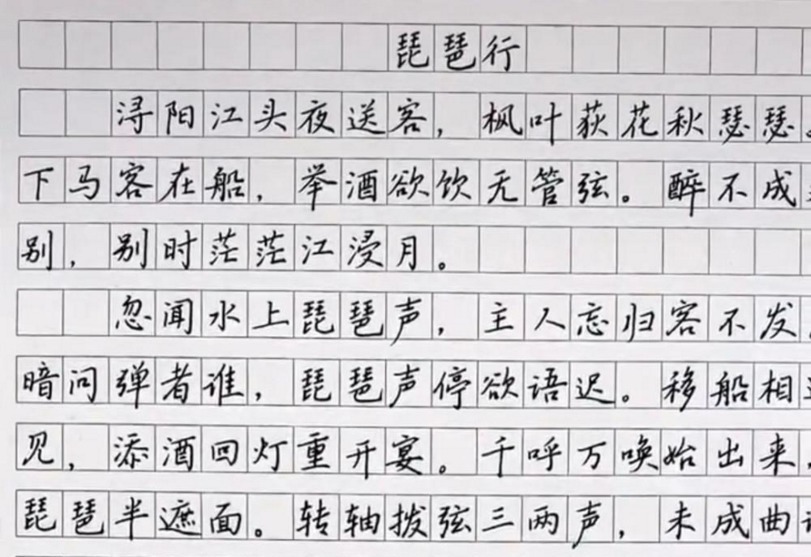 琵琶行
浔阳江头夜送客，枫叶荻花秋瑟瑟。
下马客在船，举酒欲饮无管弦。醉不成
别，别时茫茫江浸月。
忽闻水上琵琶声，主人忘归客不发。
暗问弹者谁，琵琶声停欲语迟。移船相
见，添酒回灯重开宴。千呼万唤始出来，
琵琶半遮面。转轴拨弦三两声，未成曲